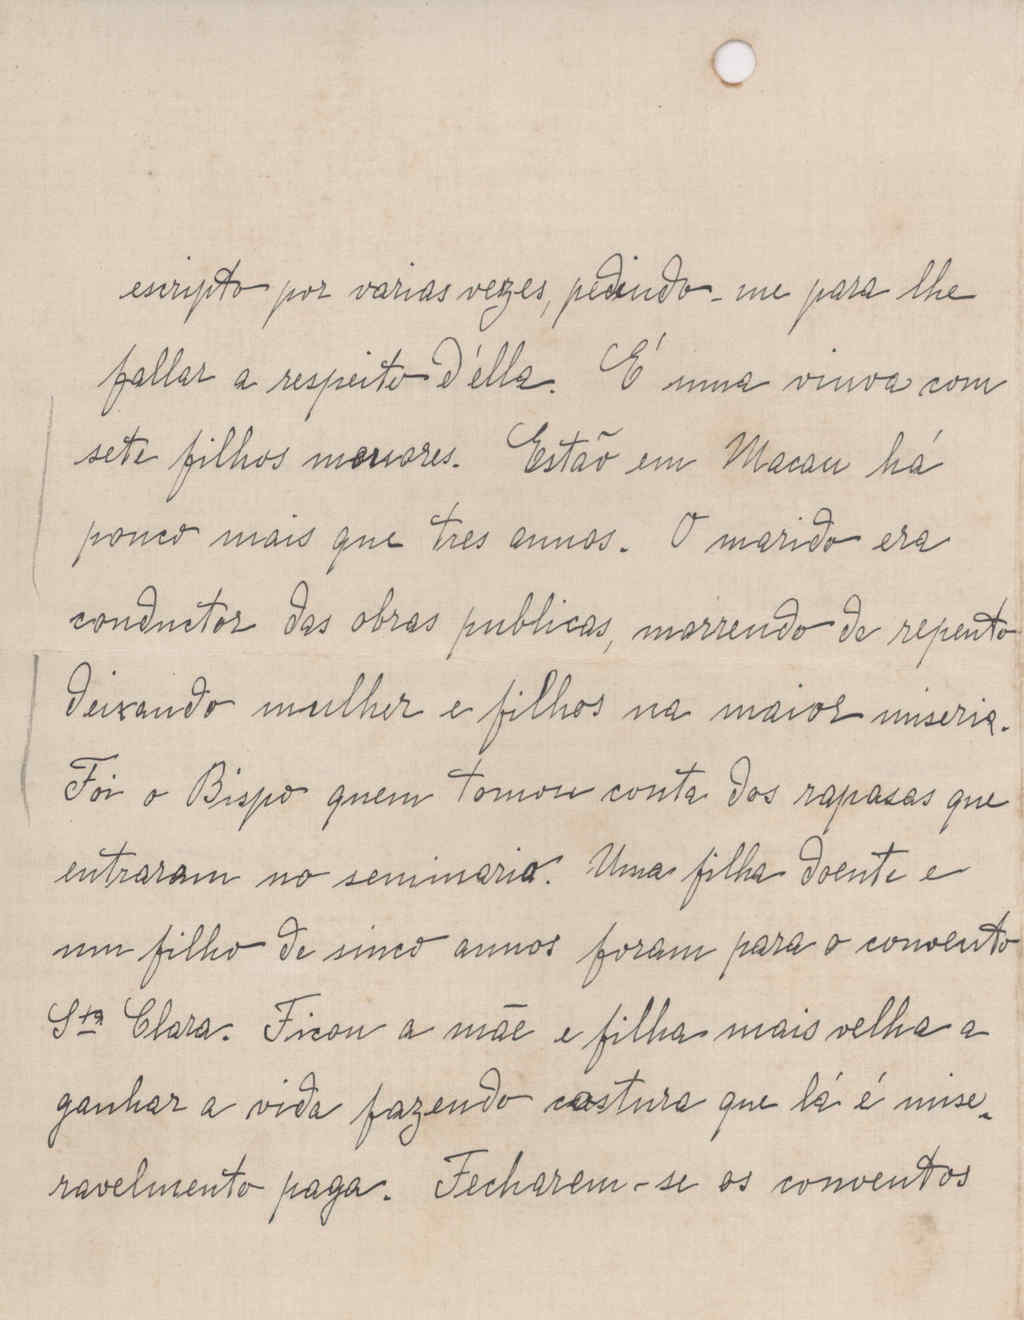 escripto por varias vezes, pedindo-me para lhe
fallar a respeito d'élla. É uma viuva com
sete filhos menores. Estão em Macau há
pouco mais que tres annos. O marido era
conductor das obras publicas, morrendo de repente
deixando mulher e filhos na maior miseria.
Foi o Bispo quem tomou conta dos rapasas que
entraram no seminario. Uma filha doente e
um filho de sinco annos foram para o convento
Sta Clara. Ficou a mãe e filha mais velha a
ganhar a vida fazendo costura que lá é mise-
ravelmente paga. Fecharem-se os conventos